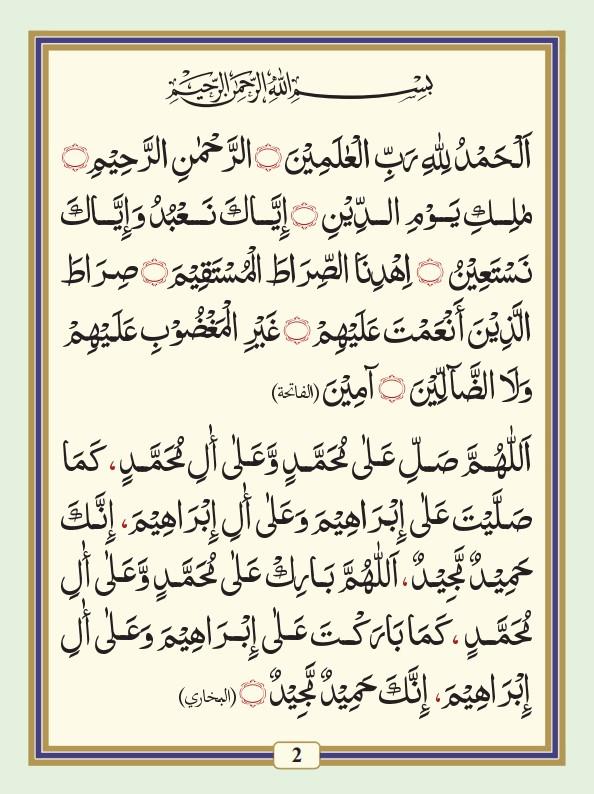 بِسْمِ اللّٰهِ الرَّحْمٰنِ الرَّحِيْمِ
اَلْحَمْدُ لِلّٰهِ رَبِّ الْعٰلَمِيْنَ ۝ الرَّحْمٰنِ الرَّحِيْمِ ۝
مٰلِكِ يَوْمِ الدِّيْنِ ۝ إِيَّاكَ نَعْبُدُ وَإِيَّاكَ
نَسْتَعِيْنُ ۝ اِهْدِنَا الصِّرَاطَ الْمُسْتَقِيْمَ ۝ صِرَاطَ
الَّذِيْنَ أَنْعَمْتَ عَلَيْهِمْ ۝ غَيْرِ الْمَغْضُوْبِ عَلَيْهِمْ
وَلَا الضَّآلِّيْنَ ۝ آمِيْنَ (الفاتحة)
اَللّٰهُمَّ صَلِّ عَلٰى مُحَمَّدٍ وَّعَلٰى أٰلِ مُحَمَّدٍ، كَمَا
صَلَّيْتَ عَلٰى إِبْرَاهِيْمَ وَعَلٰى أٰلِ إِبْرَاهِيْمَ، إِنَّكَ
حَمِيْدٌ مَّجِيْدٌ، اَللّٰهُمَّ بَارِكْ عَلٰى مُحَمَّدٍ وَّعَلٰى أٰلِ
مُحَمَّدٍ، كَمَا بَارَكْتَ عَلٰى إِبْرَاهِيْمَ وَعَلٰى أٰلِ
إِبْرَاهِيْمَ، إِنَّكَ حَمِيْدٌ مَّجِيْدٌ ۝ (البخاري)
2